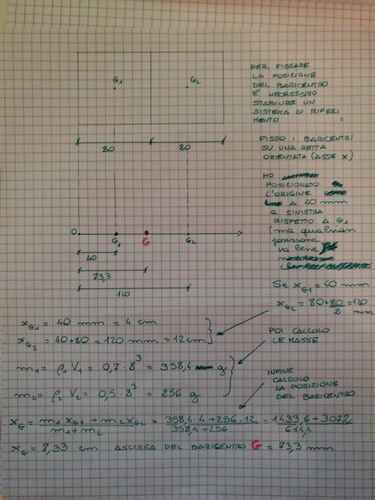 G1 G2
80 80
PER FISSARE
LA POSIZIONE
DEL BARICENTRO
È NECESSARIO
STABILIRE UN
SISTEMA DI RIFERI
MENTO
FISSO I BARICENTRI
SU UNA RETTA
ORIENTATA (ASSE X)
HO
POSIZIONATO
L'ORIGINE
A 40 mm
A SINISTRA
RISPETTO A G1
(ma qualsiasi
posizione
va bene)
O G1 G G2
40
73,3
120
Se xG1 = 40 mm
xG2 = 80+80/2 = 120 mm
xG1 = 40 mm = 4 cm
xG2 = 40+80 = 120 mm = 12 cm
POI CALCOLO
LE MASSE
m1 = ρ1 V1 = 0,7 · 8³ = 358,4 g
m2 = ρ2 V2 = 0,5 · 8³ = 256 g
INFINE
CALCOLO
LA POSIZIONE
DEL BARICENTRO
xG = m1 xG1 + m2 xG2 / m1 + m2 = 358,4 · 4 + 256 · 12 / 358,4 + 256 = 1433,6 + 3072 / 614,4
xG = 7,33 cm ASCISSA DEL BARICENTRO G = 73,3 mm